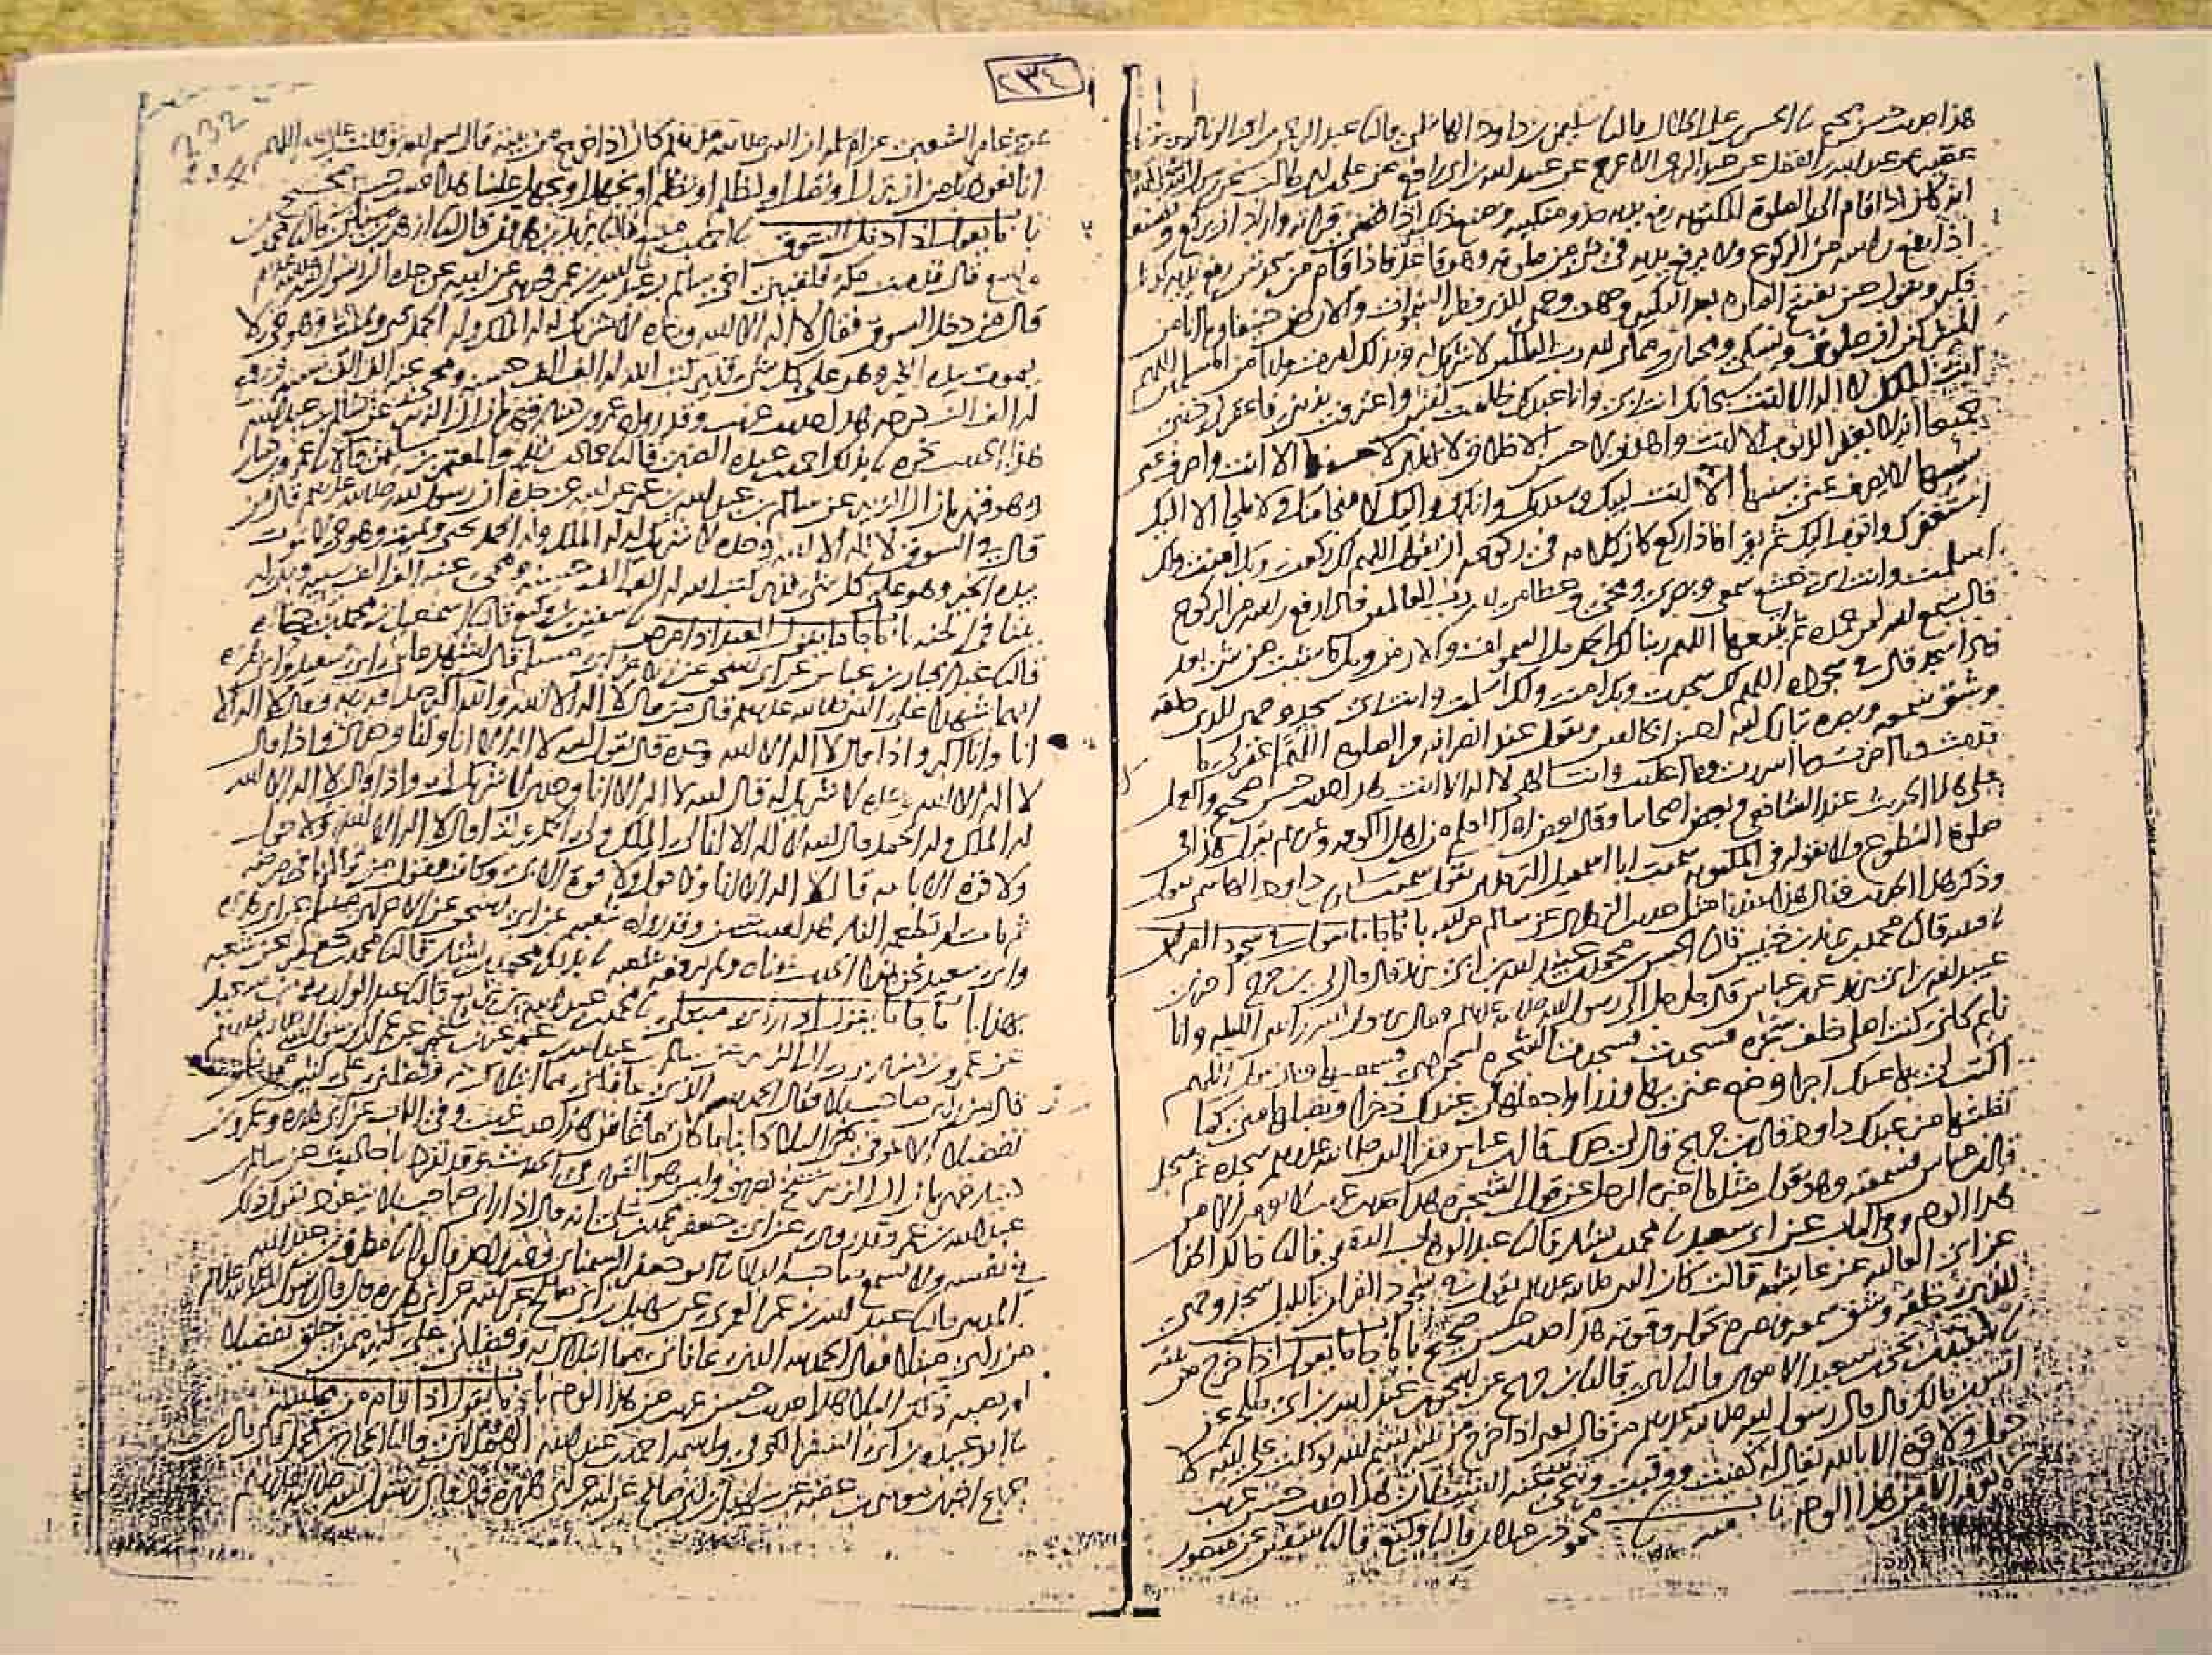 هذا حديث حسن صحيح نا الحسن بن علي الخلال قال نا سليمن بن داود الهاشمي قال نا عبد الرحمن بن ابي الزناد عن موسى بن
عقبة عن عبد الله بن الفضل عن عبد الرحمن الاعرج عن عبيد الله بن ابي رافع عن علي بن ابي طالب عن رسول الله
انه كان اذا قام الى الصلوة المكتوبة رفع يديه حذو منكبيه ويصنع ذلك اذا قضى قراته واراد ان يركع ويصنعه
اذا رفع راسه من الركوع ولا يرفع يديه في شي من صلوته وهو قاعد فاذا قام من سجدتين رفع يديه كذلك
فكبر ويقول حين يفتتح الصلوة بعد التكبير وجهت وجهي للذي فطر السموات والارض حنيفا وما انا من
المشركين ان صلوتي ونسكي ومحياي ومماتي لله رب العالمين لا شريك له وبذلك امرت وانا من المسلمين اللهم
انت الملك لا اله الا انت سبحانك انت ربي وانا عبدك ظلمت نفسي واعترفت بذنبي فاغفر لي ذنبي
جميعا انه لا يغفر الذنوب الا انت واهدني لاحسن الاخلاق لا يهدي لاحسنها الا انت واصرف عني
سيئها لا يصرف عني سيئها الا انت لبيك وسعديك وانا بك واليك لا منجا منك ولا ملجا الا اليك
استغفرك واتوب اليك ثم يقرا فاذا ركع كان كلامه في ركوعه ان يقول اللهم لك ركعت وبك امنت ولك
اسلمت وانت ربي خشع سمعي وبصري ومخي وعظامي لله رب العالمين فاذا رفع راسه من الركوع
قال سمع الله لمن حمده ثم يتبعها اللهم ربنا لك الحمد ملا السموات والارض وملا ما شئت من شي بعد
فاذا سجد قال في سجوده اللهم لك سجدت وبك امنت ولك اسلمت وانت ربي سجد وجهي للذي خلقه
وشق سمعه وبصره تبارك الله احسن الخالقين ويقول عند انصرافه من الصلوة اللهم اغفر لي ما
قدمت وما اخرت وما اسررت وما اعلنت وانت الهي لا اله الا انت هذا حديث حسن صحيح والعمل
على هذا الحديث عند الشافعي وبعض اصحابنا وقال بعض اهل العلم من اهل الكوفة وغيرهم يقول هذا في
صلوة التطوع ولا يقوله في المكتوبة سمعت ابا اسمعيل الترمذي يقول سمعت سليمن بن داود الهاشمي يقول
وذكر هذا الحديث فقال هذا عندنا مثل حديث الزهري عن سالم عن ابيه باب ما جا ما يقول في سجود القران
نا قتيبة قال نا محمد بن يزيد بن خنيس قال نا الحسن بن محمد بن عبيد الله بن ابي يزيد قال قال لي ابن جريج اخبرني
عبيد الله بن ابي يزيد عن ابن عباس قال جا رجل الى رسول الله صلى الله عليه وسلم فقال يا رسول الله رايتني الليلة وانا
نايم كاني كنت اصلي خلف شجرة فسجدت فسجدت الشجرة لسجودي فسمعتها وهي تقول اللهم
اكتب لي بها عندك اجرا وضع عني بها وزرا واجعلها لي عندك ذخرا وتقبلها مني كما
تقبلتها من عبدك داود قال ابن جريج قال لي جدك قال ابن عباس فقرا النبي صلى الله عليه وسلم سجدة ثم سجد
قال ابن عباس فسمعته وهو يقول مثل ما اخبره الرجل عن قول الشجرة هذا حديث غريب لا نعرفه الا من
هذا الوجه وفي الباب عن ابي سعيد نا محمد بن بشار قال نا عبد الوهاب الثقفي قال نا خالد الحذا
عن ابي العالية عن عايشة قالت كان النبي صلى الله عليه وسلم يقول في سجود القران بالليل سجد وجهي
للذي خلقه وشق سمعه وبصره بحوله وقوته هذا حديث حسن صحيح باب ما جا ما يقول اذا خرج من بيته
نا سعيد بن يحيى بن سعيد الاموي قال نا ابي قال نا ابن جريج عن اسحق بن عبد الله بن ابي طلحة عن
انس بن مالك قال قال رسول الله صلى الله عليه وسلم من قال يعني اذا خرج من بيته بسم الله توكلت على الله لا
حول ولا قوة الا بالله يقال له كفيت ووقيت وتنحى عنه الشيطان هذا حديث حسن غريب
لا نعرفه الا من هذا الوجه باب منه نا محمود بن غيلان قال نا وكيع قال نا سفين عن منصور
٢٣٤
232
234
عن عامر الشعبي عن ام سلمة ان النبي صلى الله عليه وسلم كان اذا خرج من بيته قال بسم الله توكلت على الله اللهم
انا نعوذ بك من ان نزل او نضل او نظلم او نظلم او نجهل او يجهل علينا هذا حديث حسن صحيح
باب ما يقول اذا دخل السوق نا احمد بن منيع قال نا يزيد بن هرون قال نا ازهر بن سنان قال نا محمد بن
واسع قال قدمت مكة فلقيني اخي سالم بن عبد الله بن عمر فحدثني عن ابيه عن جده ان رسول الله صلى الله عليه وسلم
قال من دخل السوق فقال لا اله الا الله وحده لا شريك له له الملك وله الحمد يحيي ويميت وهو حي لا
يموت بيده الخير وهو على كل شي قدير كتب الله له الف الف حسنة ومحى عنه الف الف سيئة ورفع
له الف الف درجة هذا حديث غريب وقد رواه عمرو بن دينار قهرمان ال الزبير عن سالم بن عبد الله
هذا الحديث نحوه نا بذلك احمد بن عبدة الضبي قال نا حماد بن زيد والمعتمر بن سليمن قالا نا عمرو بن دينار
وهو قهرمان ال الزبير عن سالم بن عبد الله بن عمر عن ابيه عن جده ان رسول الله صلى الله عليه وسلم قال من
قال في السوق لا اله الا الله وحده لا شريك له له الملك وله الحمد يحيي ويميت وهو حي لا يموت
بيده الخير وهو على كل شي قدير كتب الله له الف الف حسنة ومحى عنه الف الف سيئة وبنى له
بيتا في الجنة باب ما جا ما يقول العبد اذا مرض نا سفين بن وكيع قال نا اسمعيل بن محمد بن جحادة
قال نا عبد الجبار بن عباس عن ابي اسحق عن الاغر ابي مسلم قال اشهد على ابي سعيد وابي هريرة
انهما شهدا على النبي صلى الله عليه وسلم قال من قال لا اله الا الله والله اكبر صدقه ربه وقال لا اله الا
انا وانا اكبر واذا قال لا اله الا الله وحده قال يقول الله لا اله الا انا وانا وحدي واذا قال
لا اله الا الله وحده لا شريك له قال الله لا اله الا انا وحدي لا شريك لي واذا قال لا اله الا الله
له الملك وله الحمد قال الله لا اله الا انا لي الملك ولي الحمد واذا قال لا اله الا الله ولا حول
ولا قوة الا بالله قال لا اله الا انا ولا حول ولا قوة الا بي وكان يقول من قالها في مرضه
ثم مات لم تطعمه النار هذا حديث حسن وقد رواه شعبة عن ابي اسحق عن الاغر ابي مسلم عن ابي هريرة
وابي سعيد نحو هذا الحديث بمعناه ولم يرفعه شعبة نا بذلك محمد بن بشار قال نا محمد بن جعفر عن شعبة
بهذا باب ما جا ما يقول اذا راى مبتلى نا محمد بن عبد الله بن بزيع قال نا عبد الوارث بن سعيد
عن عمرو بن دينار مولى ال الزبير عن سالم بن عبد الله بن عمر عن ابن عمر عن عمر ان رسول الله صلى الله عليه وسلم
قال من راى صاحب بلا فقال الحمد لله الذي عافاني مما ابتلاك به وفضلني على كثير ممن خلق
تفضيلا الا عوفي من ذلك البلا كاينا ما كان ما عاش هذا حديث غريب وفي الباب عن ابي هريرة وعمرو بن
دينار قهرمان ال الزبير شيخ بصري وليس هو بالقوي في الحديث وقد تفرد باحاديث عن سالم بن
عبد الله بن عمر وقد روي عن ابي جعفر محمد بن علي انه قال اذا راى صاحب بلا يتعوذ يقول ذلك
في نفسه ولا يسمع صاحب البلا نا ابو جعفر السمناني وغير واحد قالوا نا مطرف بن عبد الله
المديني قال نا عبد الله بن عمر العمري عن سهيل بن ابي صالح عن ابيه عن ابي هريرة قال قال رسول الله صلى الله عليه وسلم
من راى مبتلا فقال الحمد لله الذي عافاني مما ابتلاك به وفضلني على كثير ممن خلق تفضيلا
لم يصبه ذلك البلا هذا حديث حسن غريب من هذا الوجه باب ما يقول اذا قام من مجلسه
نا ابو عبيدة بن ابي السفر الكوفي واسمه احمد بن عبد الله الهمداني قال نا الحجاج بن محمد قال قال ابن
جريج اخبرني موسى بن عقبة عن سهيل بن ابي صالح عن ابيه عن ابي هريرة قال قال رسول الله صلى الله عليه وسلم